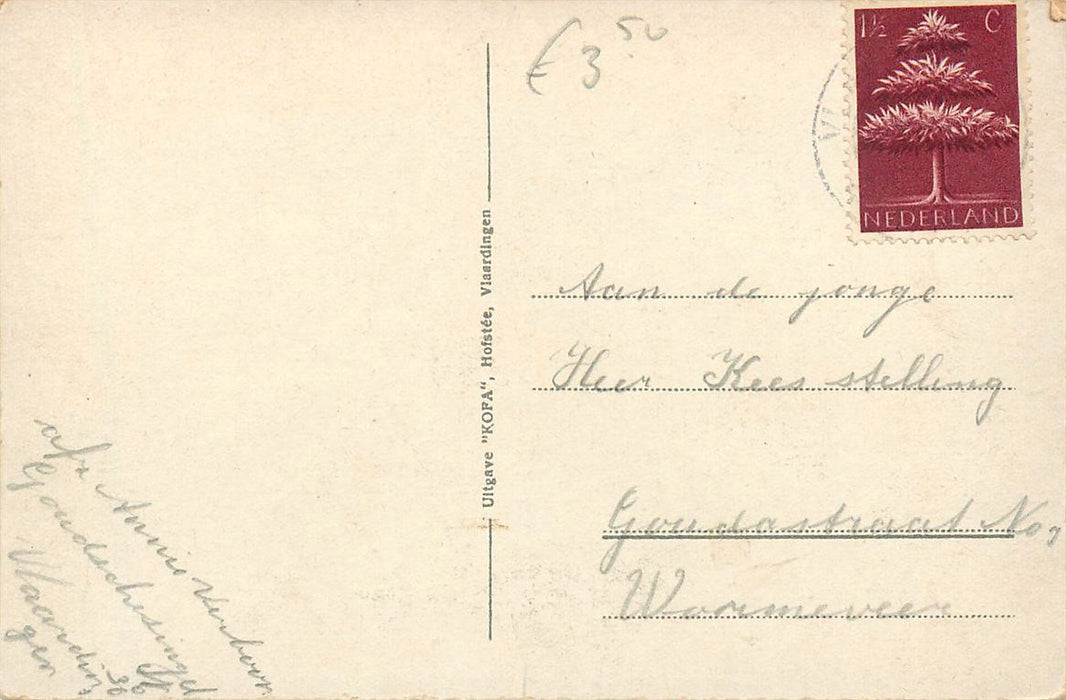 € 3.50
1½ C
NEDERLAND
VL
Uitgave "KOFA", Hofstée, Vlaardingen
Aan de jonge
Heer Kees Stelling
Goudastraat No 7
Wormeveer
afz Annie Verboon
Goudschesingel
Vlaardin
gen